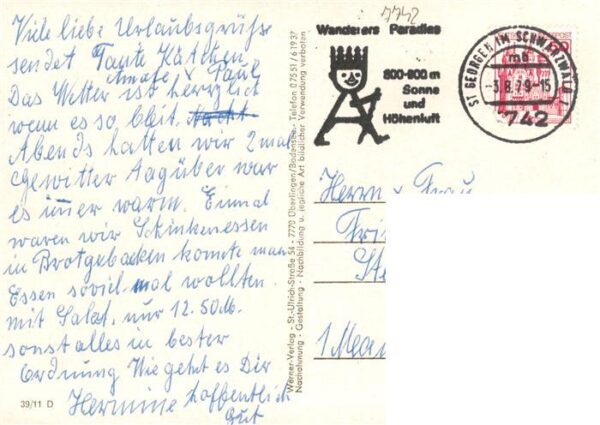 Viele liebe Urlaubsgrüße
sendet Tante Kätchen
u Tante
Das Wetter ist herrlich
wenn es so bleit.
Abends hatten wir 2 mal
Gewitter Tagüber war
es imer warm. Einmal
waren wir Schinkenessen
in Brotgebacken konnte man
Essen soviel mal wollten
mit Salat, nur 12.50 M.
sonst alles in bester
Ordnung Wie geht es Dir
Hermine hoffentlich
gut
39/11 D
Werner-Verlag - St.-Ulrich-Straße 54 - 7770 Überlingen/Bodensee - Telefon 07551/61937
Nachahmung - Gestaltung - Nachbildung u. jegliche Art bildlicher Verwendung verboten
7742
Wanderers Paradies
800-600 m
Sonne
und
Höhenluft
ST GEORGEN IM SCHWARZWALD 1
mb
-3.8.79-15
742
Herrn u Frau
Fri
St
1